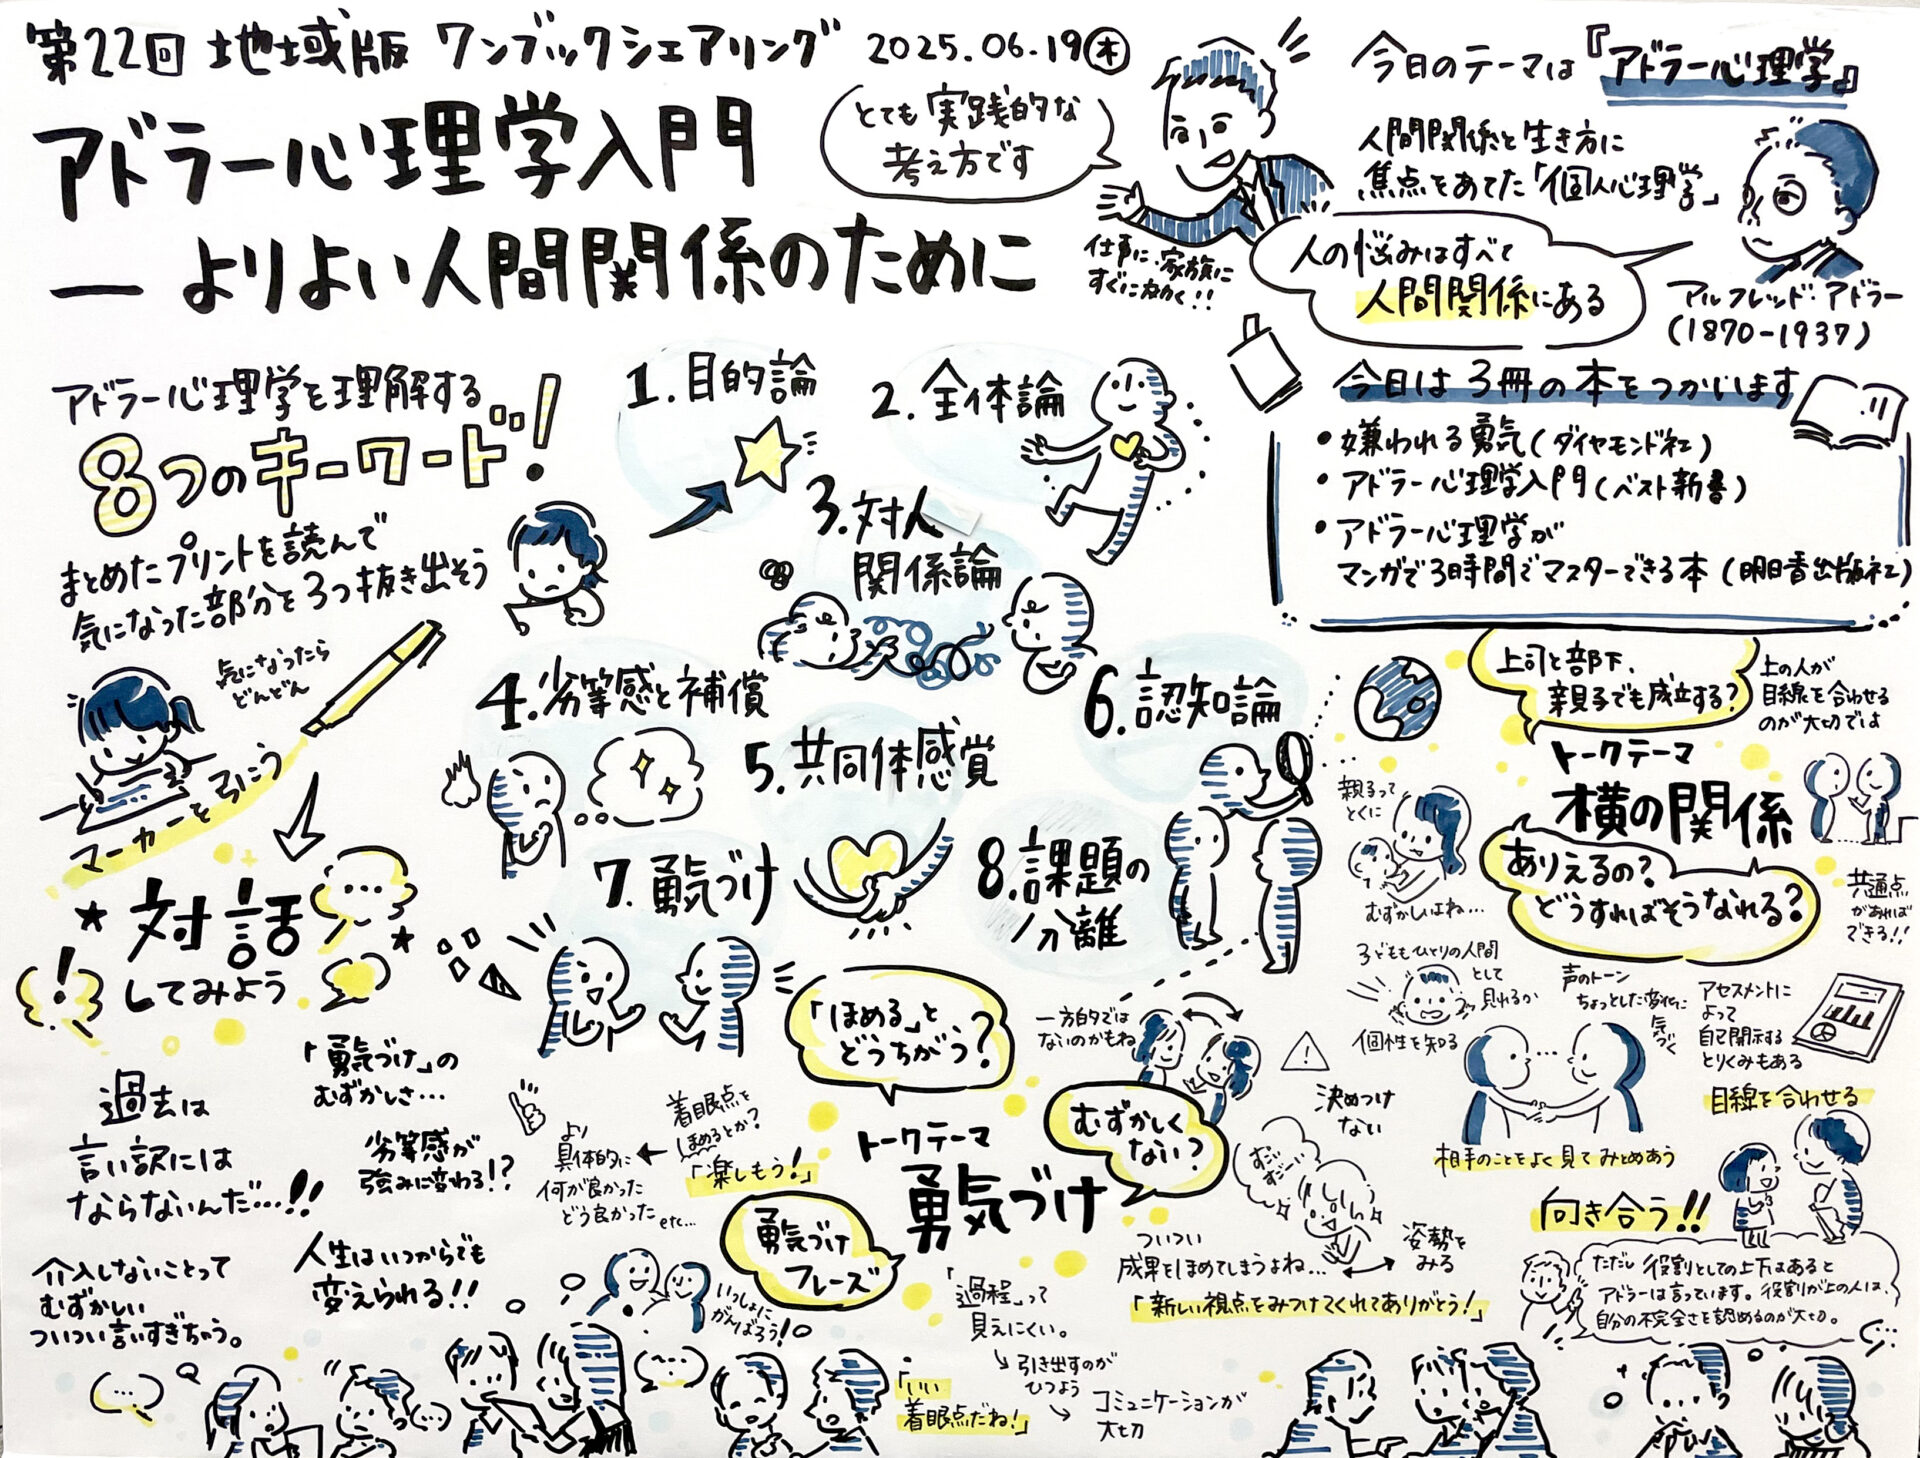 第22回 地域版 ワンブックシェアリング 2025.06.19(木)
アドラー心理学入門
― よりよい人間関係のために
とても実践的な
考え方です
仕事に・家族に
すぐに
今日のテーマは『アドラー心理学』
人間関係と生き方に
焦点をあてた「個人心理学」
人の悩みはすべて
人間関係にある
アルフレッド・アドラー
(1870-1937)
今日は3冊の本をつかいます
・嫌われる勇気(ダイヤモンド社)
・アドラー心理学入門(ベスト新書)
・アドラー心理学が
マンガで3時間でマスターできる本(明日香出版社)
アドラー心理学を理解する
8つのキーワード!
まとめたプリントを読んで
気になった部分を3つ抜き出そう
気になったら
どんどん
マーカーを引こう
対話
してみよう
1.目的論
2.全体論
3.対人
関係論
4.劣等感と補償
5.共同体感覚
6.認知論
7.勇気づけ
8.課題の
分離
過去は
言い訳には
ならないんだ…!!
「勇気づけ」の
むずかしさ…
劣等感が
強みに変わる!?
介入しないことって
むずかしい
ついつい言いすぎちゃう。
人生はいつからでも
変えられる!!
「ほめる」と
どうちがう?
着眼点を
ほめるとか?
「楽しもう!」
より
具体的に
何が良かった
どう良かった etc…
トークテーマ
勇気づけ
むずかしく
ない?
勇気づけ
フレーズ
いっしょに
がんばろう!
「過程」って
見えにくい。
引き出すのが
ひつよう
コミュニケーションが
大切
「いい
着眼点だね!」
一方的では
ないのかもね
決めつけ
ない
すごい
すごーい
ついつい
成果をほめてしまうよね…
姿勢を
みる
「新しい視点をみつけてくれてありがとう!」
上司と部下、
親子でも成立する?
上の人が
目線を合わせる
のが大切では
トークテーマ
横の関係
ありえるの?
どうすればそうなれる?
共通点
があれば
できる!!
親子って
とくに
むずかしいよね…
子どももひとりの人間
として
見れるか
個性を知る
声のトーン
ちょっとした変化に
気づく
アセスメントに
よって
自己開示する
とりくみもある
目線を合わせる
相手のことをよく見てみとめあう
向き合う!!
ただし 役割としての上下はあると
アドラーは言っています。役割が上の人は、
自分の不完全さを認めるのが大切。